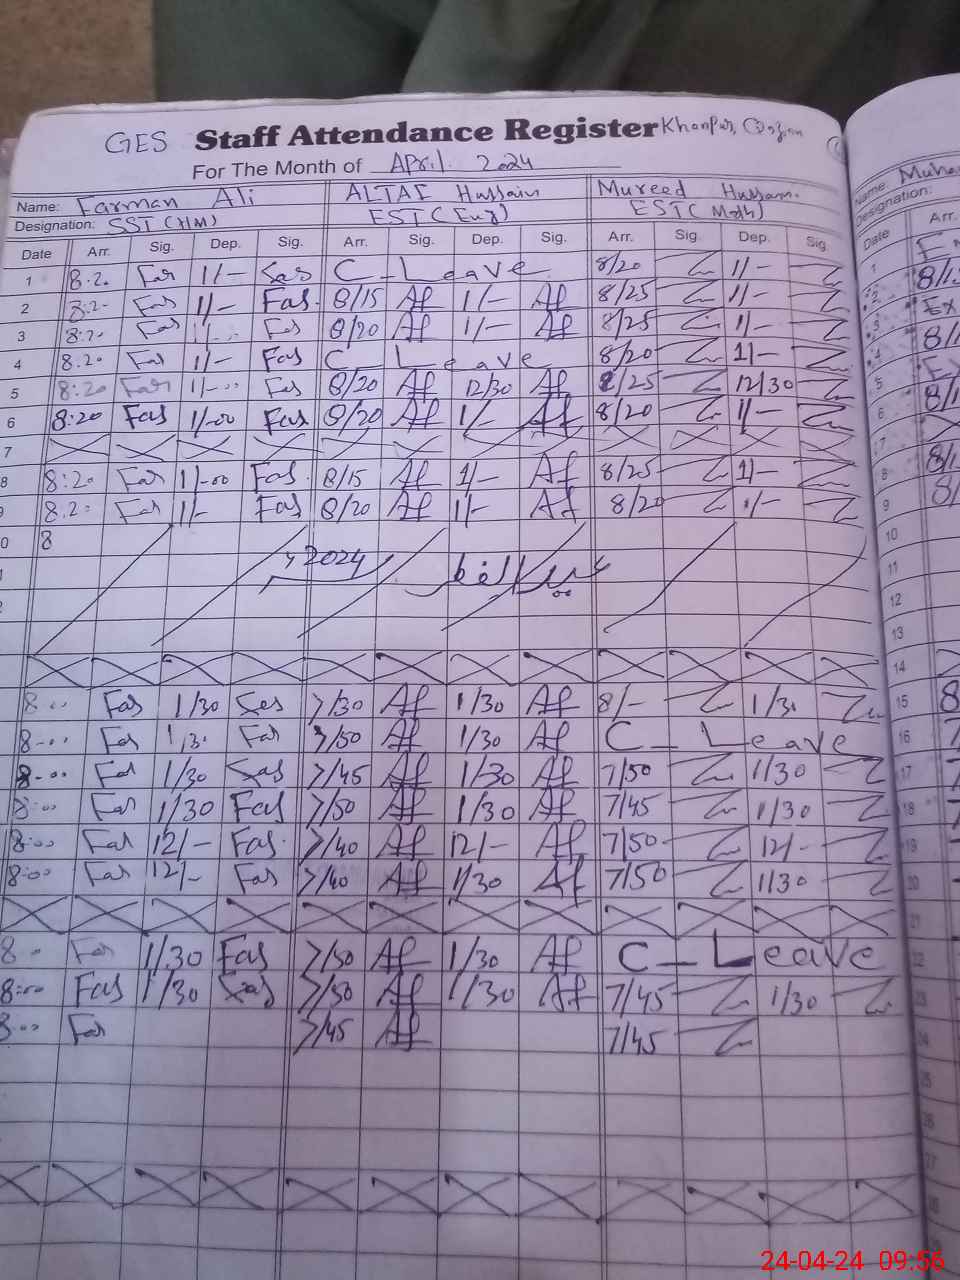 GES Staff Attendance Register Khanpur,
For The Month of April. 2024
Name: Farman Ali ALTAF Hussain Mureed Hussain.
Designation: SST (HM) EST (Eng) EST (Math)
Date Arr. Sig. Dep. Sig. Arr. Sig. Dep. Sig. Arr. Sig. Dep. Sig.
1 8:20 Far 1/- Fas C - Leave 8/20 1/-
2 8:20 Far 1/- Fas. 8/15 Af 1/- Af 8/25 1/-
3 8:20 Far 1/- Fas 8/20 Af 1/- Af 8/25 1/-
4 8:20 Far 1/- Fas C - Leave 8/20 1/-
5 8:20 Far 1/-00 Fas 8/20 Af 12/30 Af 8/25 12/30
6 8:20 Fas 1/-00 Fas 8/20 Af 1/- Af 8/20 1/-
7
8 8:20 Far 1/-00 Fas. 8/15 Af 1/- Af 8/25 1/-
9 8:20 Far 1/- Fas 8/20 Af 1/- Af 8/20 1/-
0 8
1 2024 عیدالفطر
2
8:00 Fas 1/30 Fas 7/30 Af 1/30 Af 8/- 1/30
8-00 Far 1/30 Far 7/50 Af 1/30 Af C - Leave
8-00 Far 1/30 Fas 7/45 Af 1/30 Af 7/50 1/30
8:00 Far 1/30 Fas 7/50 Af 1/30 Af 7/45 1/30
8:00 Far 12/- Fas. 7/40 Af 12/- Af 7/50 12/-
8:00 Far 12/- Fas 7/40 Af 1/30 Af 7/50 1/30
8:00 Far 1/30 Fas 7/50 Af 1/30 Af C - Leave
8:00 Fas 1/30 Fas 7/50 Af 1/30 Af 7/45 1/30
8:00 Far 7/45 Af 7/45
Name: Muha
Designation:
Date Arr.
1
2 8/1
3 Ex
4 8/1
5
6 8/1
7
8 8/1
9 8/
10
11
12
13
14
15 8
16 7
17
18
19
20
21
22
23
24
25
26
27
24-04-24 09:56